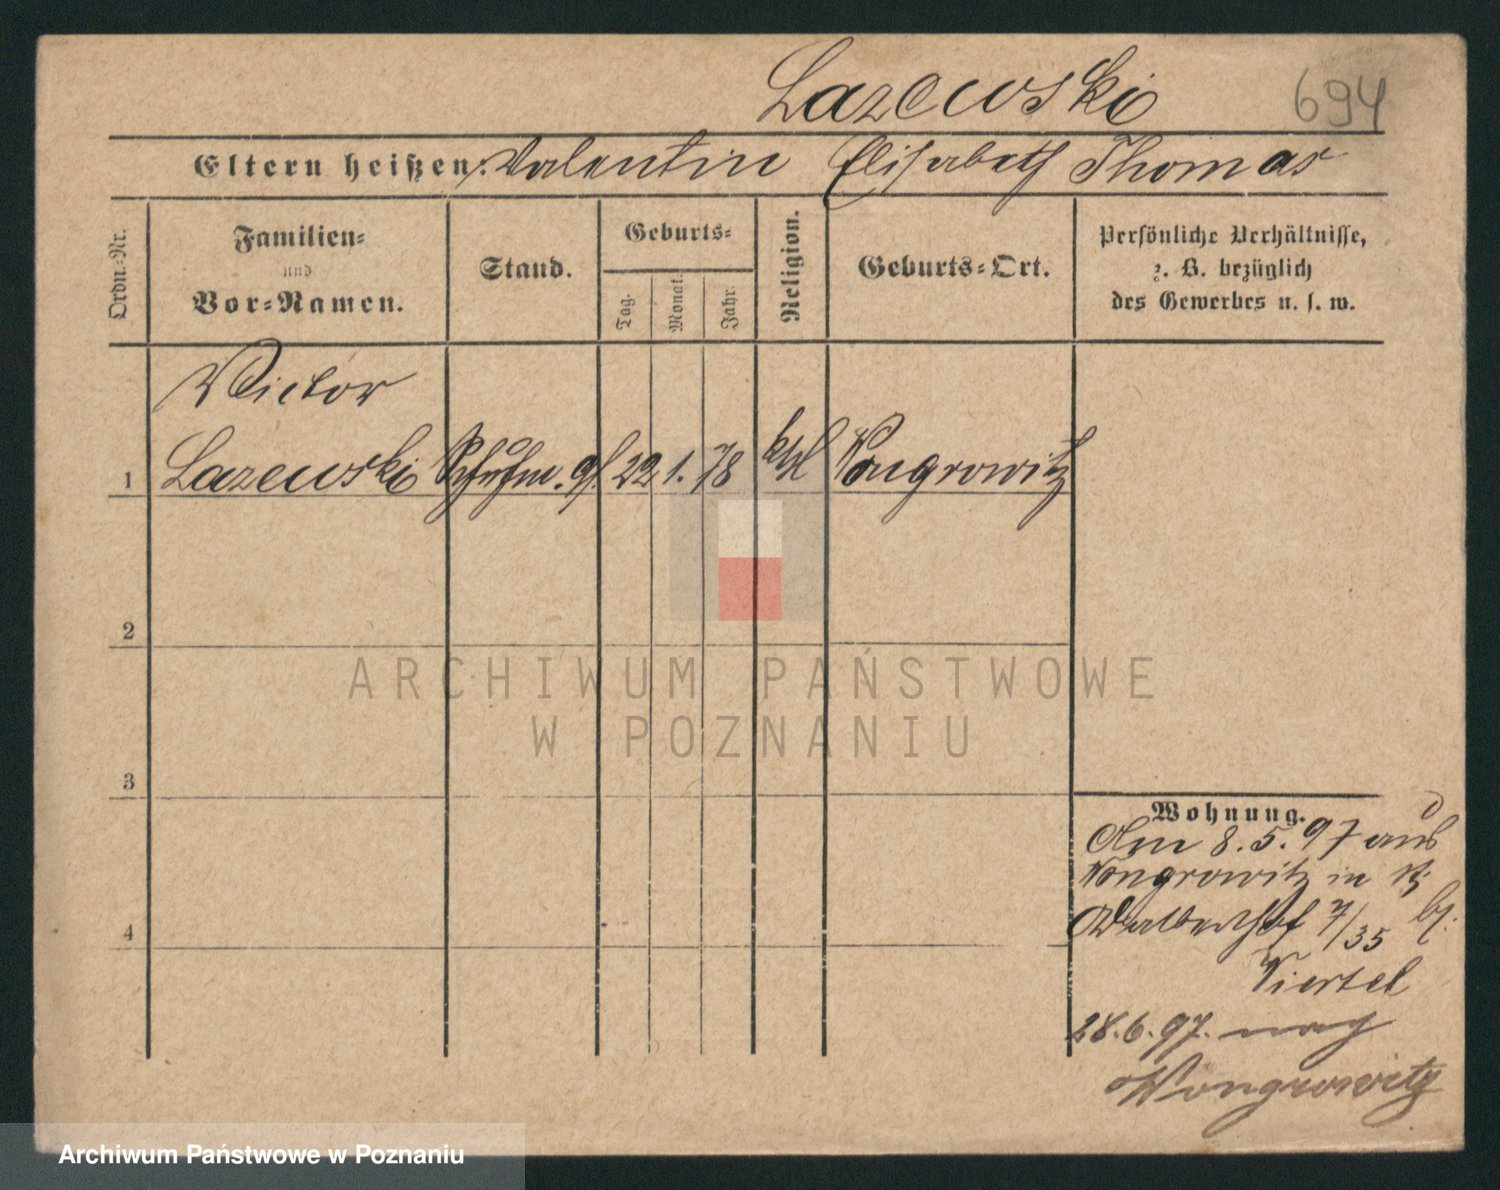 Lazewski 694
Eltern heißen: Valentin Elisabeth Thomas
Ordn.-Nr.
Familien-
und
Vor-Namen.
Stand.
Geburts-
Tag.
Monat.
Jahr.
Religion.
Geburts-Ort.
Persönliche Verhältnisse,
z. B. bezüglich
des Gewerbes u. s. w.
Victor
1 Lazewski Schuhm. gs. 22 1. 78 kthl Wongrowitz
2
ARCHIWUM PAŃSTWOWE
W POZNANIU
3
4
Wohnung.
Am 8.5.97 aus
Wongrowitz in
7/35 bei
Viertel
28.6.97. nach
Wongrowitz
Archiwum Państwowe w Poznaniu